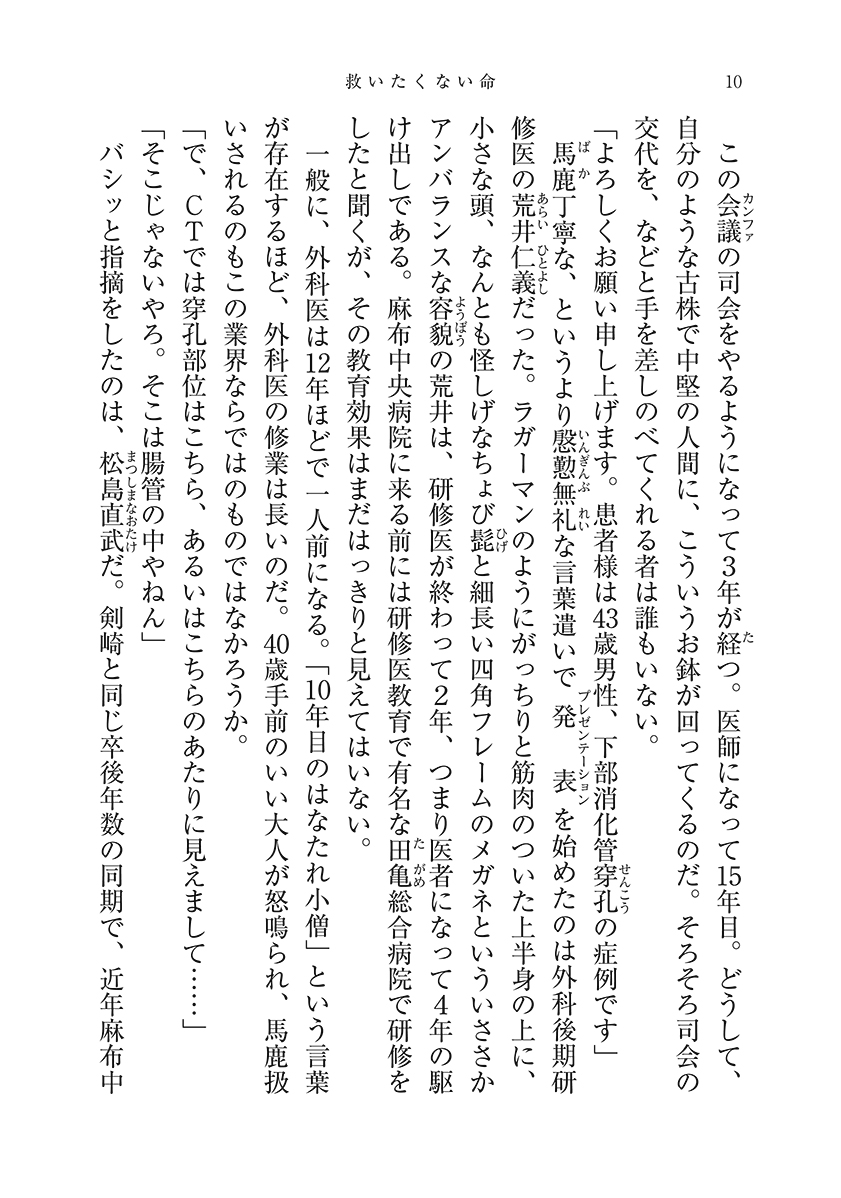 救いたくない命
10
この会議の司会をやるようになって3年が経つ。医師になって15年目。どうして、
自分のような古株で中堅の人間に、こういうお鉢が回ってくるのだ。そろそろ司会の
交代を、などと手を差しのべてくれる者は誰もいない。
「よろしくお願い申し上げます。患者様は43歳男性、下部消化管穿孔の症例です」
馬鹿丁寧な、というより慇懃無礼な言葉遣いで発表を始めたのは外科後期研
修医の荒井仁義だった。ラガーマンのようにがっちりと筋肉のついた上半身の上に、
小さな頭、なんとも怪しげなちょび髭と細長い四角フレームのメガネといういささか
アンバランスな容貌の荒井は、研修医が終わって2年、つまり医者になって4年の駆
け出しである。麻布中央病院に来る前には研修医教育で有名な田亀総合病院で研修を
したと聞くが、その教育効果はまだはっきりと見えてはいない。
一般に、外科医は12年ほどで一人前になる。「10年目のはなたれ小僧」という言葉
が存在するほど、外科医の修業は長いのだ。40歳手前のいい大人が怒鳴られ、馬鹿扱
いされるのもこの業界ならではのものではなかろうか。
「で、CTでは穿孔部位はこちら、あるいはこちらのあたりに見えまして……」
「そこじゃないやろ。そこは腸管の中やねん」
バシッと指摘をしたのは、松島直武だ。剣崎と同じ卒後年数の同期で、近年麻布中
カンファ
た
せんこう
ばか
いんぎんぶ れい
プレゼンテーション
あらい ひとよし
ひげ
ようぼう
た がめ
まつしまなおたけ